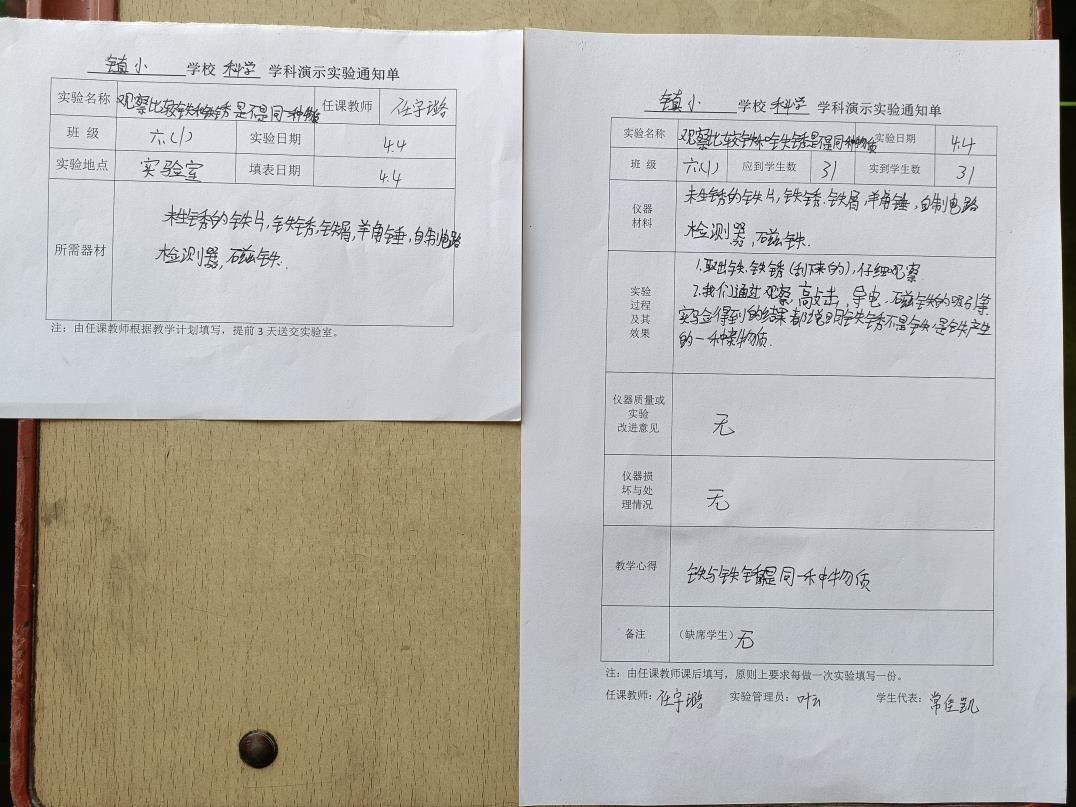 镇小 学校 科学 学科演示实验通知单
实验名称 观察比较铁和铁锈是不是同一种物质 任课教师 任宇璐
班 级 六(1) 实验日期 4.4
实验地点 实验室 填表日期 4.4
所需器材
未生锈的铁片,铁锈,铁屑,羊角锤,自制电路
检测器,磁铁.
注:由任课教师根据教学计划填写,提前 3 天送交实验室。
镇小 学校 科学 学科演示实验通知单
实验名称 观察比较铁和铁锈是不是同一种物质 实验日期 4.4
班 级 六(1) 应到学生数 31 实到学生数 31
仪器
材料
未生锈的铁片,铁锈.铁屑,羊角锤,自制电路
检测器,磁铁.
实验
过程
及其
效果
1.取出铁.铁锈(刮下来的),仔细观察
2.我们通过观察,敲击,导电.磁铁的吸引等
实验得到的结果都说明铁锈不是铁.是铁产生
的一种新物质.
仪器质量或
实验
改进意见
无
仪器损
坏与处
理情况
无
教学心得
铁与铁锈 是同一种物质
备注 (缺席学生)无
注:由任课教师课后填写,原则上要求每做一次实验填写一份。
任课教师:任宇璐 实验管理员:叶云 学生代表:常佳凯